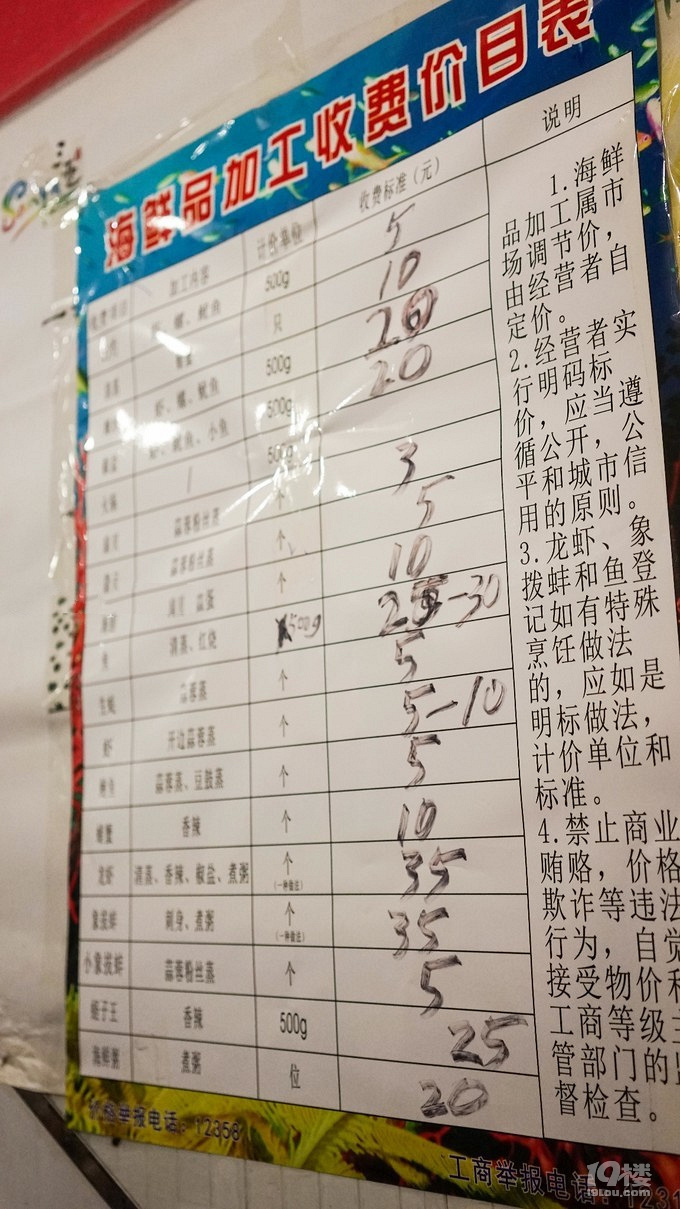 海鲜品加工收费价目表
收费项目 加工内容 计价单位 收费标准（元） 说明
虾、螺、鱿鱼 500g 5
只 10
虾、螺、鱿鱼 500g 20
虾、鱿鱼、小鱼 500g 20
火锅 / 500g
蒜蓉粉丝蒸 个 3
蒜蓉粉丝蒸 个 5
个 10
鱼 清蒸、红烧 500g 25-30
生蚝 蒜蓉蒸 个 5
虾 开边蒜蓉蒸 个 5-10
鲍鱼 蒜蓉蒸、豆豉蒸 个 5
螃蟹 香辣 个 10
龙虾 清蒸、香辣、椒盐、煮粥 个 35
（一种做法）
象拔蚌 刺身、煮粥 个 35
（一种做法）
小象拔蚌 蒜蓉粉丝蒸 个 5
蛏子王 香辣 500g 25
海鲜粥 煮粥 位 20
1.海鲜
品加工属市
场调节价，
由经营者自
定价。
2.经营者实
行明码标
价，应当遵
循公开，公
平和城市信
用的原则。
3.龙虾、象
拨蚌和鱼登
记如有特殊
烹饪做法
的，应如是
明标做法，
计价单位和
标准。
4.禁止商业
贿赂，价格
欺诈等违法
行为，自觉
接受物价和
工商等级主
管部门的监
督检查。
价格举报电话：12358
工商举报电话：1231
19楼
19lou.com